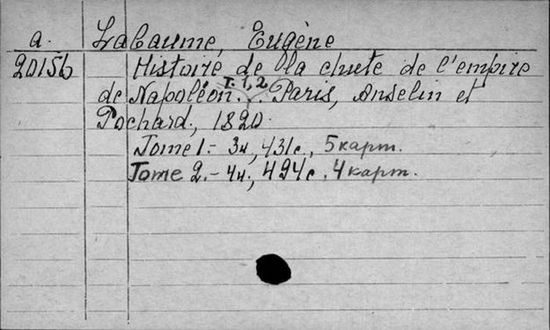 a. Labaume, Eugène
20156 Histoire de la chute de l'empire
de Napoléon. T. 1, 2. Paris, Anselin et
Pochard, 1820.
Tome 1.- 3н, 431с., 5 карт.
Tome 2.- 4н., 424с. 4 карт.